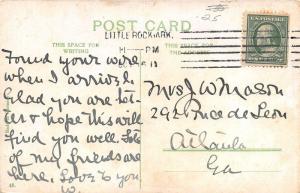 25
POST CARD
LITTLE ROCK, ARK.
THIS SPACE FOR WRITING
PM
Found your wire
when I arrived
Glad you are
& hope this will
find you well. Lots
of my friends are
here. Love to you
W.
Mrs J. W. Mason
292 Ponce de Leon
Atlanta
Ga